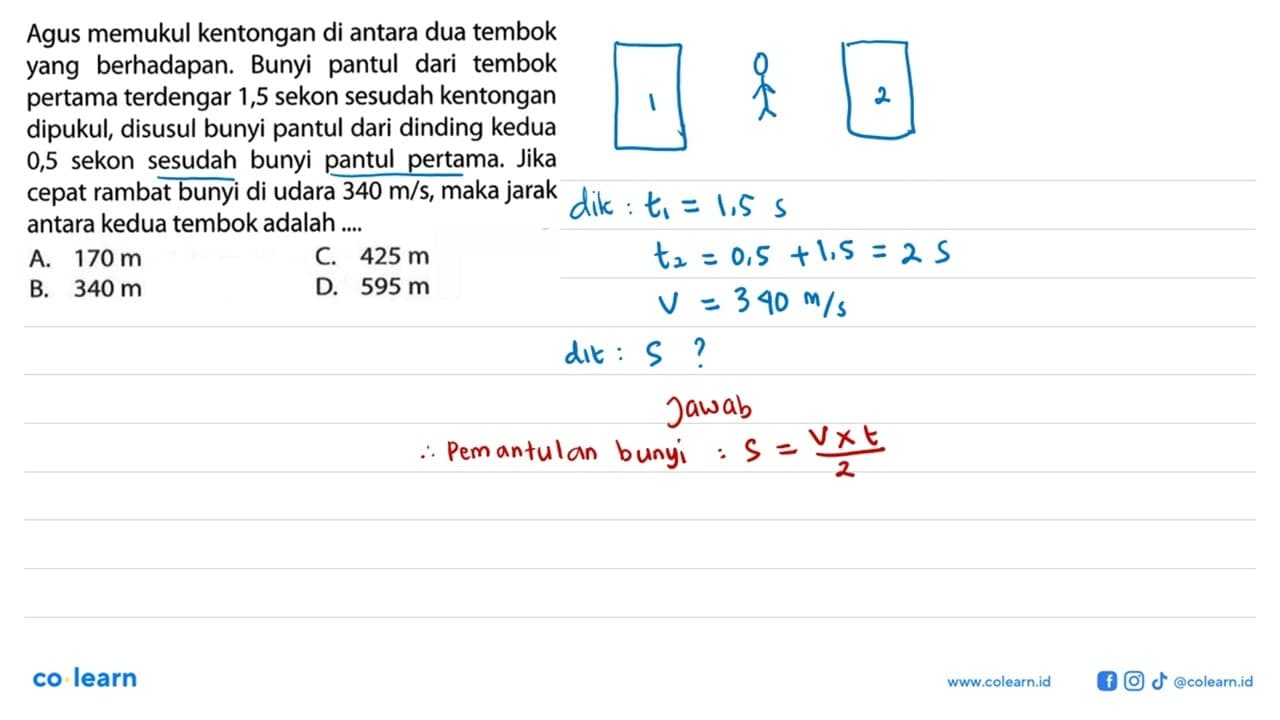 Agus memukul kentongan di antara dua tembok
yang berhadapan. Bunyi pantul dari tembok
pertama terdengar 1,5 sekon sesudah kentongan
dipukul, disusul bunyi pantul dari dinding kedua
0,5 sekon sesudah bunyi pantul pertama. Jika
cepat rambat bunyi di udara 340 m/s, maka jarak
antara kedua tembok adalah ....
A. 170 m C. 425 m
B. 340 m D. 595 m
1 2
dik : t₁ = 1,5 s
t₂ = 0,5 + 1,5 = 2 s
v = 340 m/s
dit : s ?
Jawab
∴ Pemantulan bunyi : s = v × t / 2
co learn
www.colearn.id @colearn.id